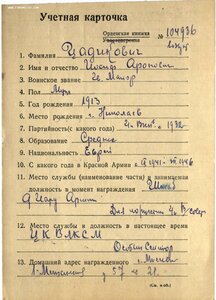 Учетная карточка
Орденская книжка
№ 104936
1. Фамилия Цадикович
2. Имя и отчество Иосиф Аронович
3. Воинское звание Гв. Майор
4. Пол Муж
5. Год рождения 1913
6. Место рождения г. Николаев
7. Партийность (с какого года) 1932
8. Образование Среднее
9. Национальность Еврей
10. С какого года в Красной Армии с 1941 1946
11. Место службы (наименование части) и занимаемая
должность в момент награждения Штаб
12. Место службы и должность в настоящее время
ЦК ВЛКСМ
Особый сектор
13. Домашний адрес награжденного г. Москва
57 21
(См. н об.)